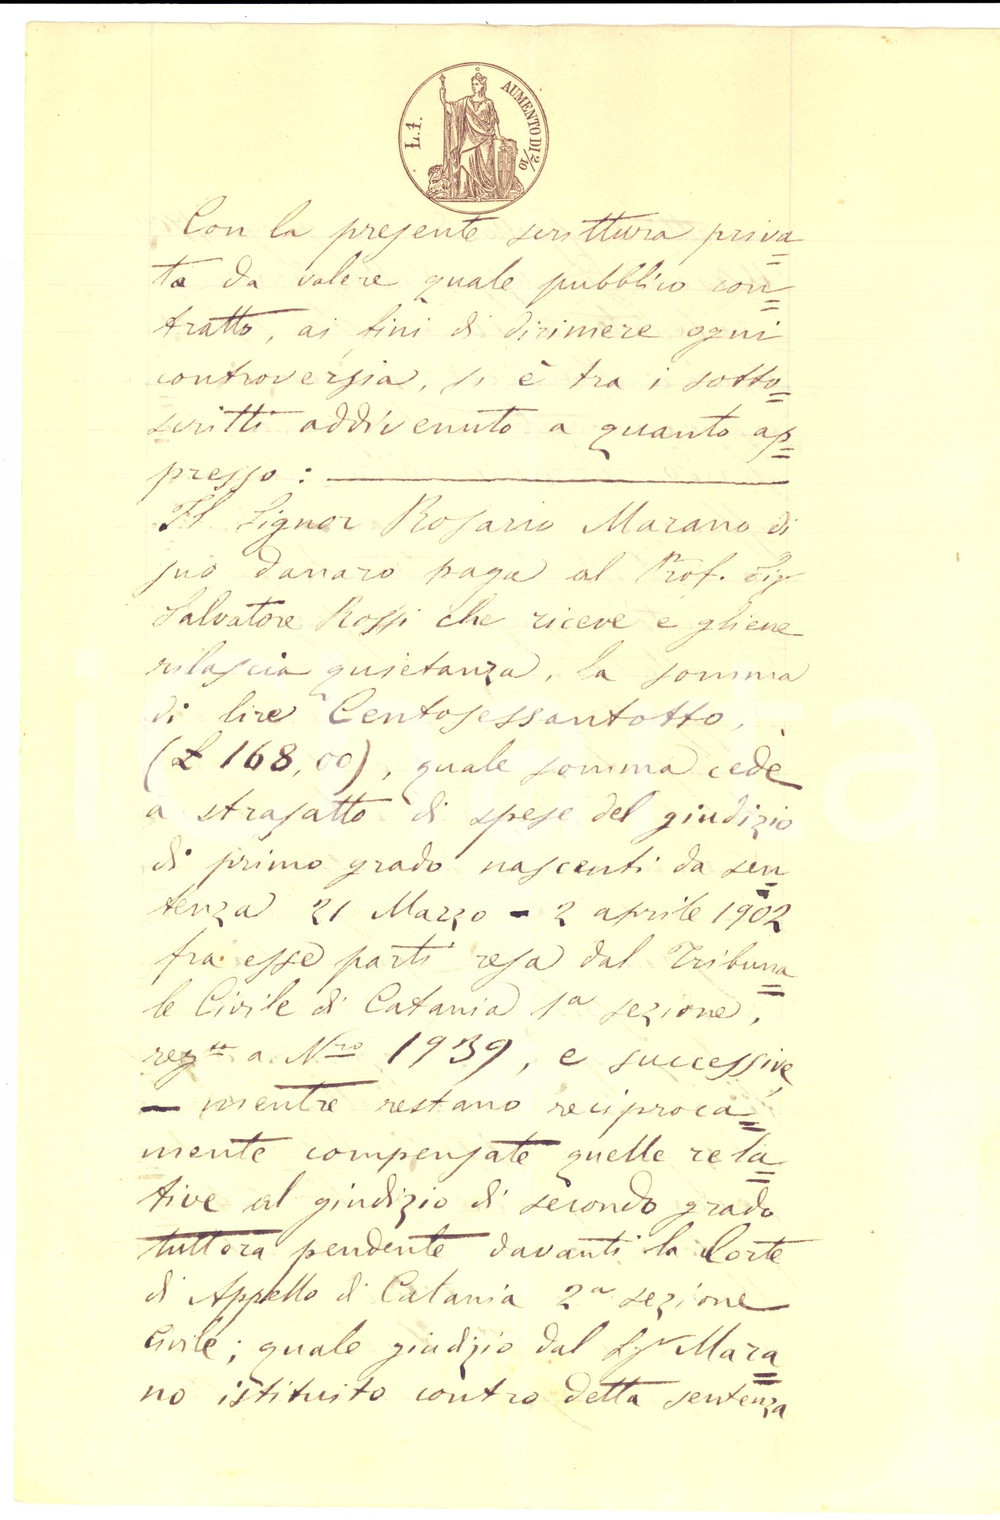 L.1.
AUMENTO DI 2/10
Con la presente scrittura priva=
ta da valere quale pubblico con=
tratto, ai fini di dirimere ogni
controversia, si è tra i sotto=
scritti addivenuto a quanto ap=
presso:
Il Signor Rosario Marano di
suo danaro paga al Prof. Sigr
Salvatore Rossi che riceve e gliene
rilascia quietanza, la somma
di lire Centosessantotto,
(£ 168,00), quale somma cede
a strasatto di spese del giudizio
di primo grado nascenti da sen=
tenza 21 Marzo - 2 aprile 1902
fra esse parti resa dal Tribuna=
le Civile di Catania 1a sezione,
regta a Nro 1939, e successive,
- mentre restano reciproca=
mente compensate quelle rela=
tive al giudizio di secondo grado
tuttora pendente davanti la Corte
di Appello di Catania 2a sezione
Civile; quale giudizio dal Sigr Mara=
no istituito contro detta sentenza